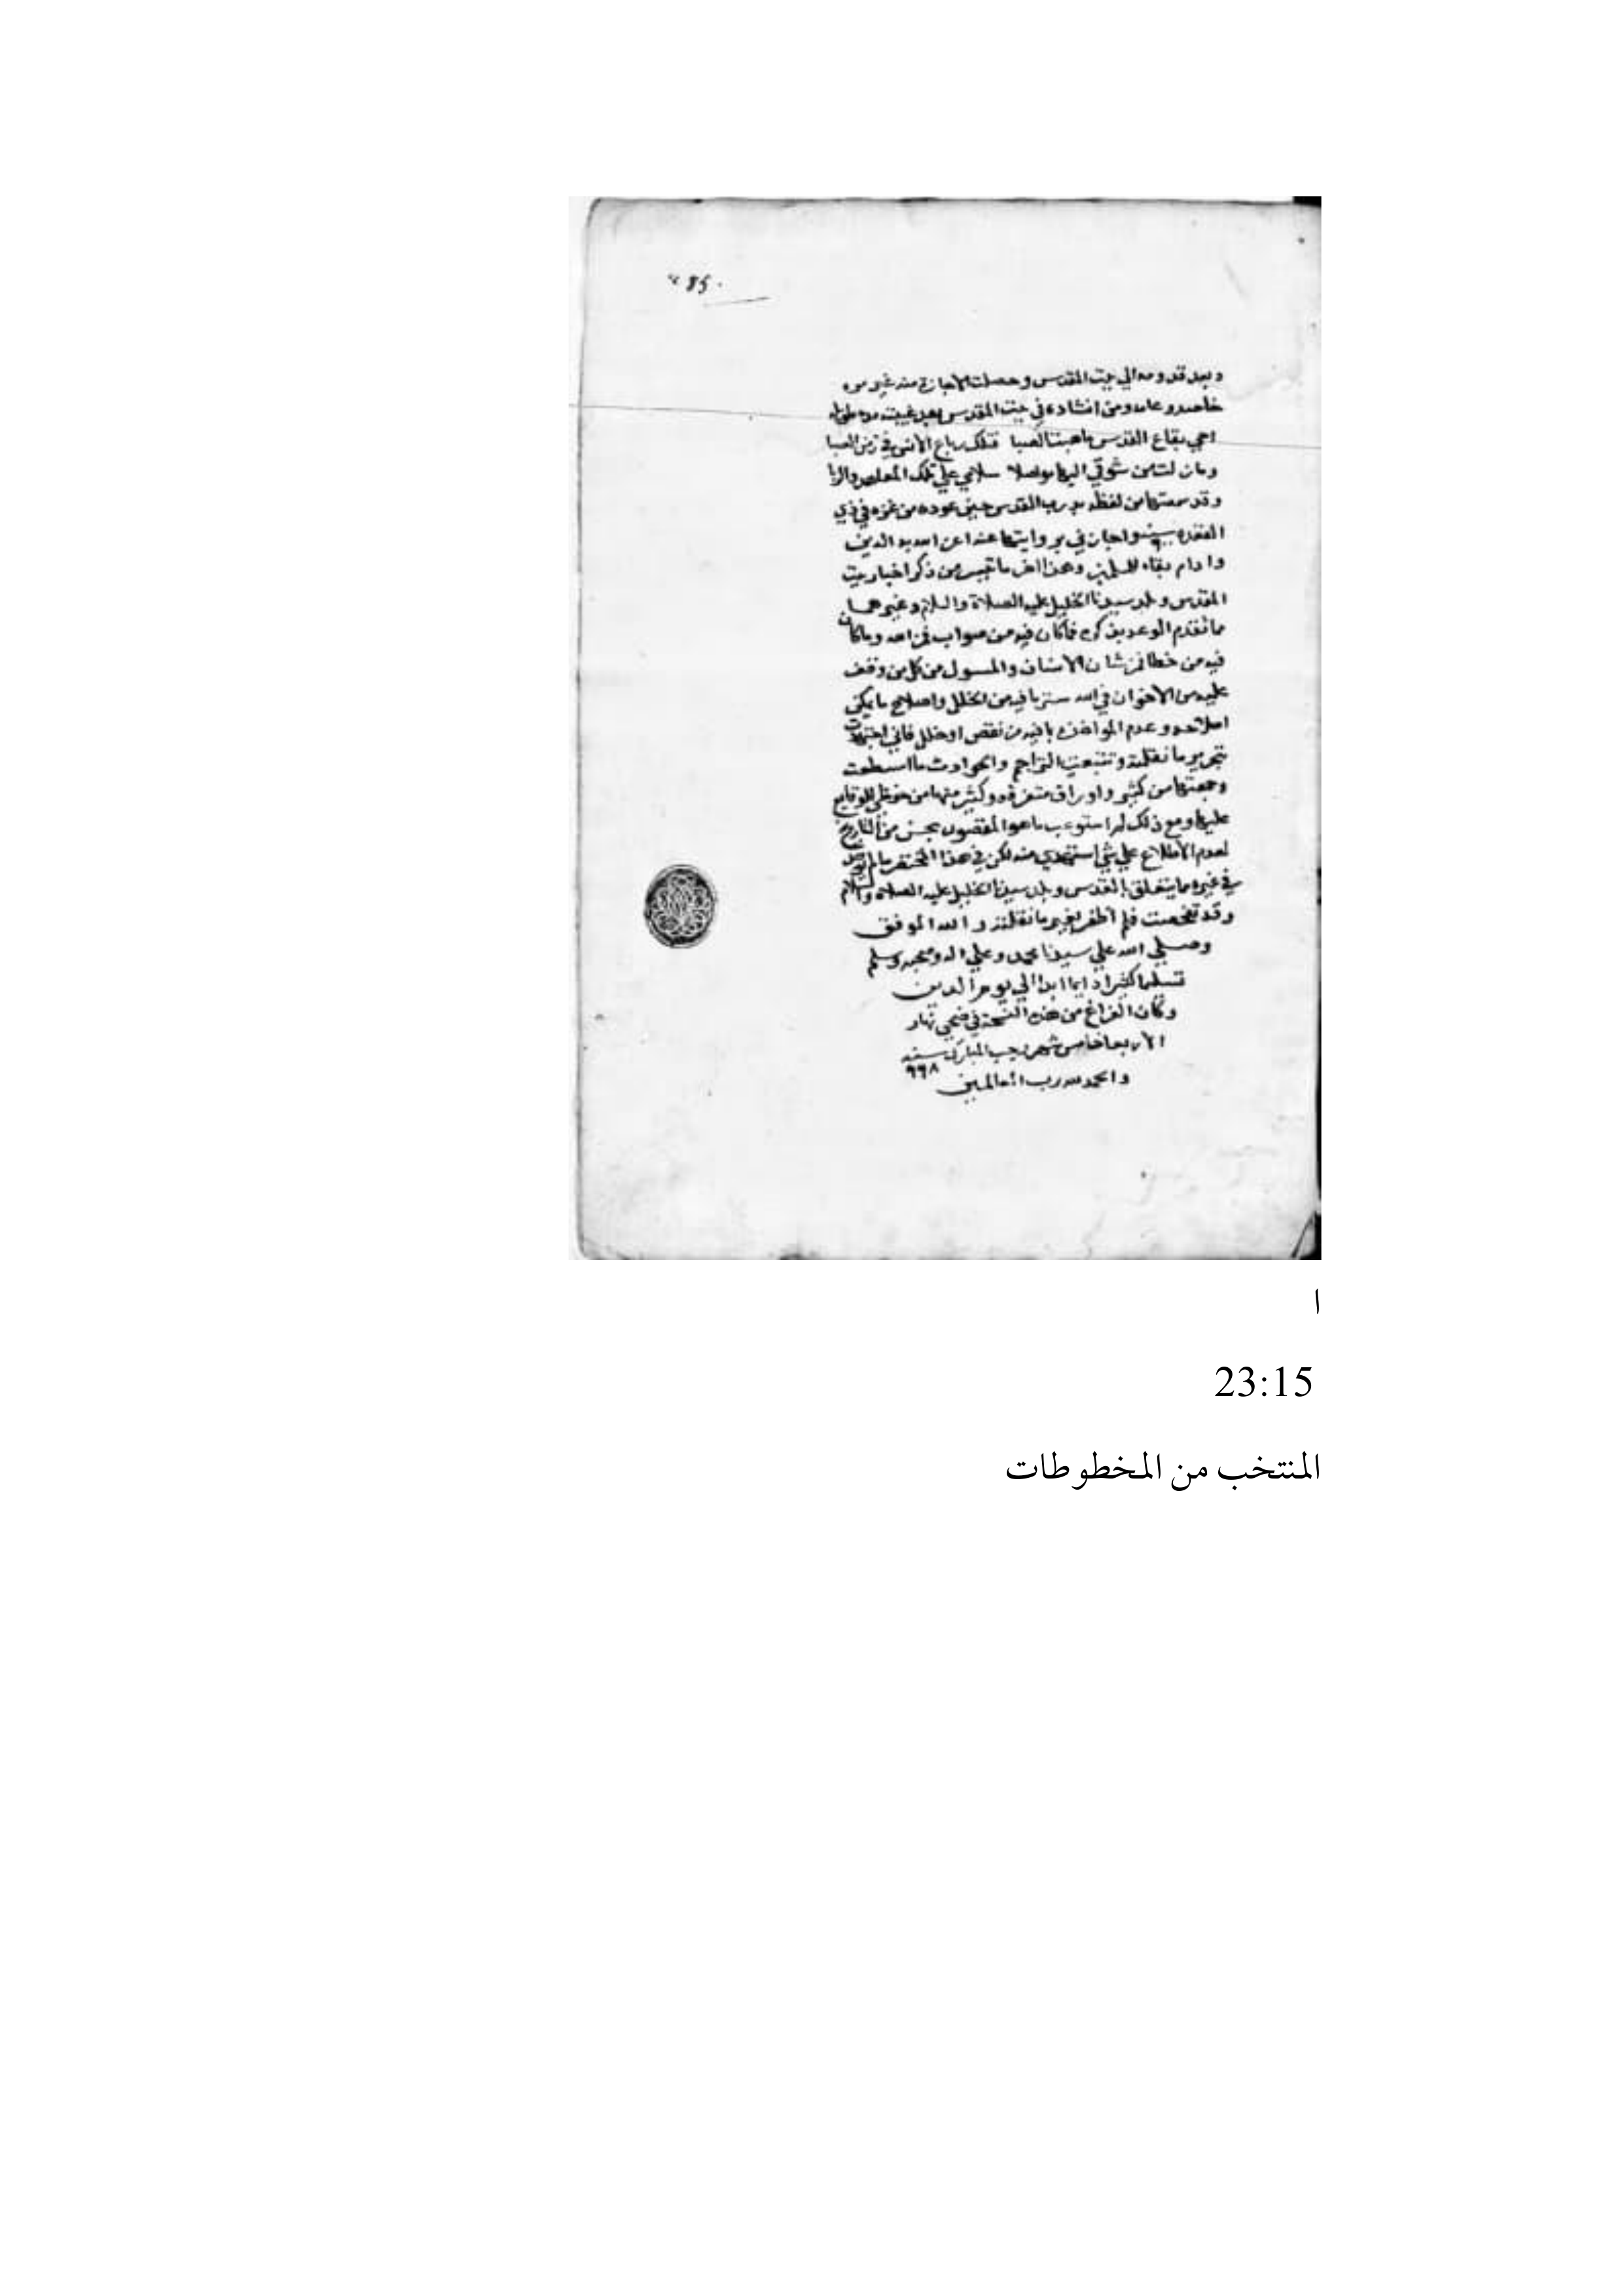 485
وبعد قدومه الي بيت المقدس وحصلت الاجازة منه غير مره
خاصه وعامه ومن انشاده في بيت المقدس بعد غيبته مده طويله
احيي بقاع القدس ماهبت الصبا فتلك رباع الانس في زمن الصبا
وما زلت من شوقي اليها مواصلا سلامي علي تلك المعاهد والربا
وقد سمعتها من لفظه بدرب القدس حين عوده من غزه في ذي
القعده واجازني بروايتها عنه اعز الله به الدين
وادام بقاه للمسلمين وهذا اخر ما تيسر من ذكر اخبار بيت
المقدس وبلد سيدنا الخليل عليه الصلاة والسلام وغيرهما
مما تقدم الوعد بذكره فما كان فيه من صواب فمن الله وما كان
فيه من خطا فمن شان الانسان والمسول من كل من وقف
عليه من الاخوان في الله ستر ما فيه من الخلل واصلاح ما يمكن
اصلاحه وعدم المواخذه بما فيه من نقص او خلل فاني اجتهدت
بتحرير ما نقلته وتتبعت التراجم والحوادث ما استطعت
وجمعتها من كتب واوراق متفرقه وكثير منها من حفظي للوقايع
عليها ومع ذلك لم استوعب ما هو المقصود بحسن من التاريخ
لعدم الاطلاع علي شي استمد منه لكن في هذا المختصر ما لم يوجد
في غيره مما يتعلق بالقدس وبلد سيدنا الخليل عليه الصلاة والسلام
وقد تفحصت فلم اظفر بغير ما نقلته والله الموفق
وصلي الله علي سيدنا محمد وعلي اله وصحبه وسلم
تسليما كثيرا دايما ابدا الي يوم الدين
وكان الفراغ من هذه النسخة في ضحي نهار
الاربعا خامس شهر رجب المبارك سنه
٩٩٨
والحمد لله رب العالمين
ا
23:15
المنتخب من المخطوطات